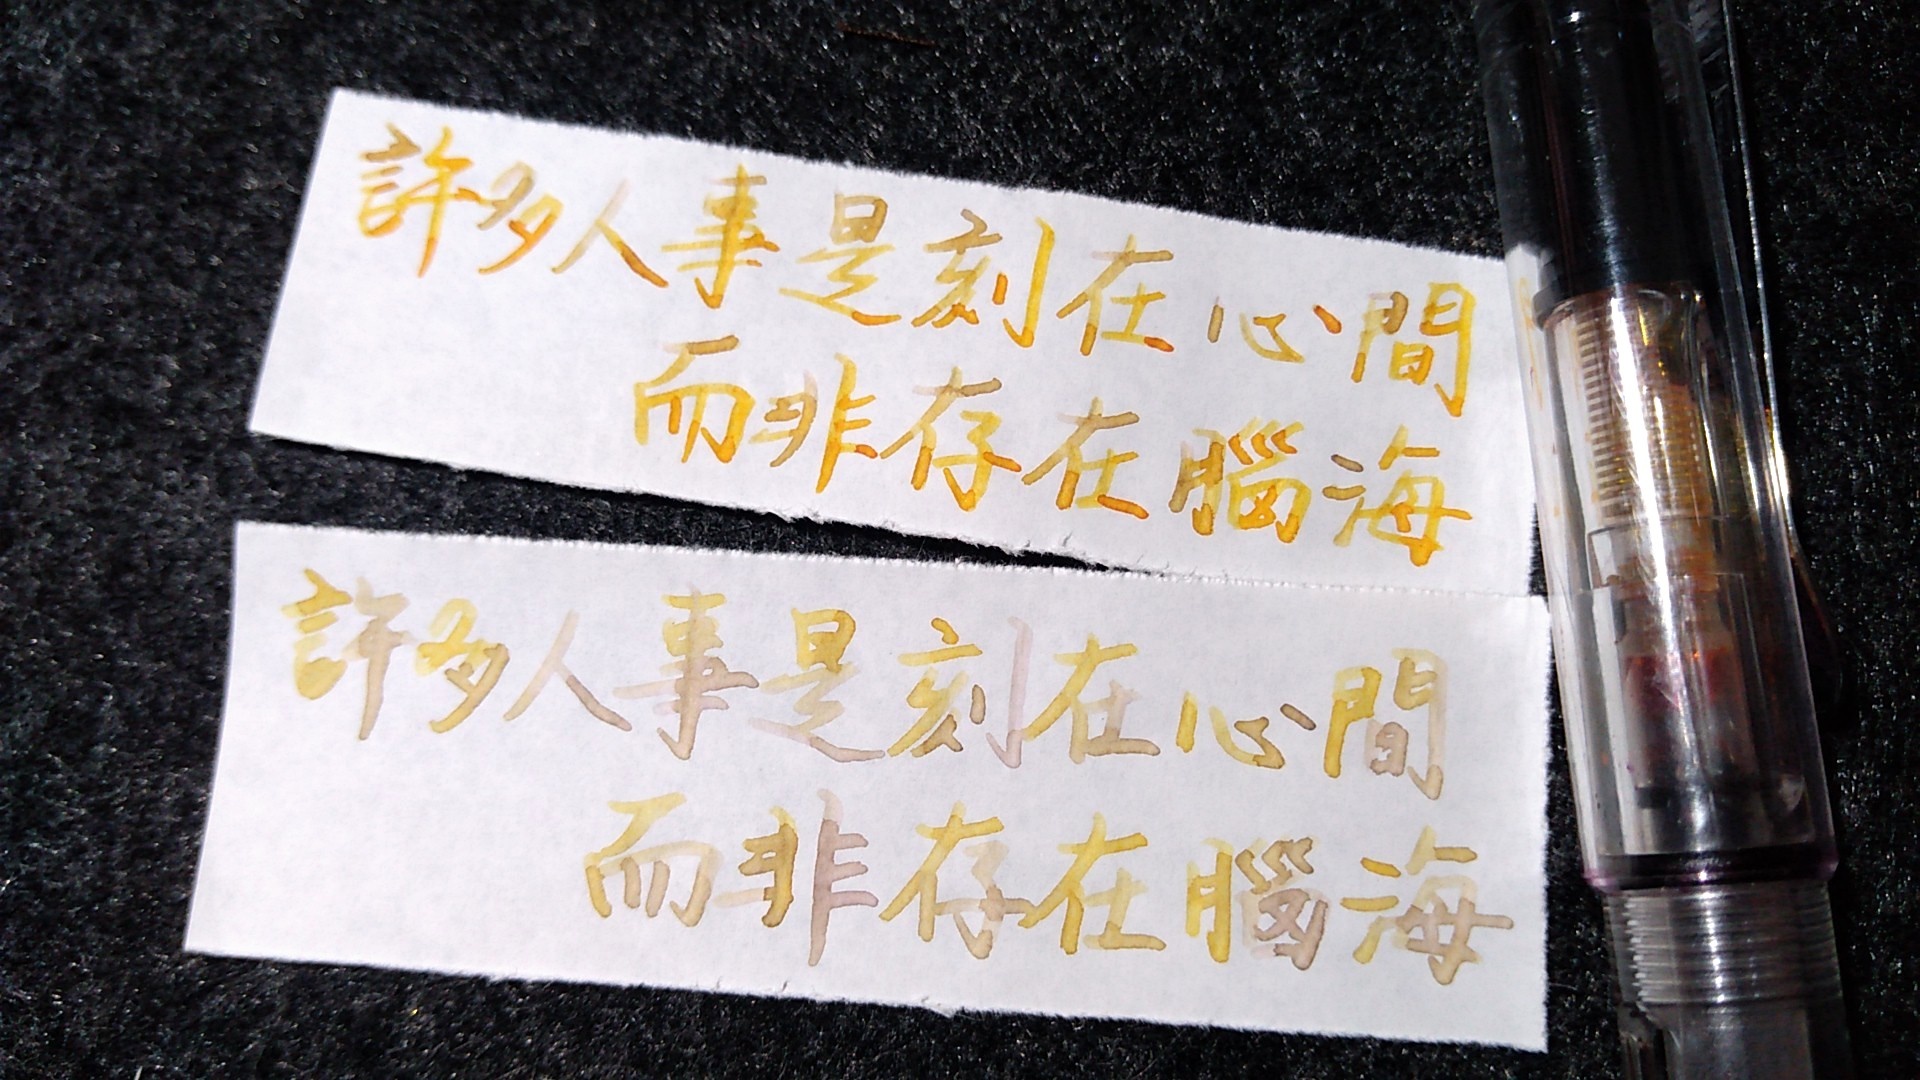 許多人事是刻在心間
而非存在腦海
許多人事是刻在心間
而非存在腦海